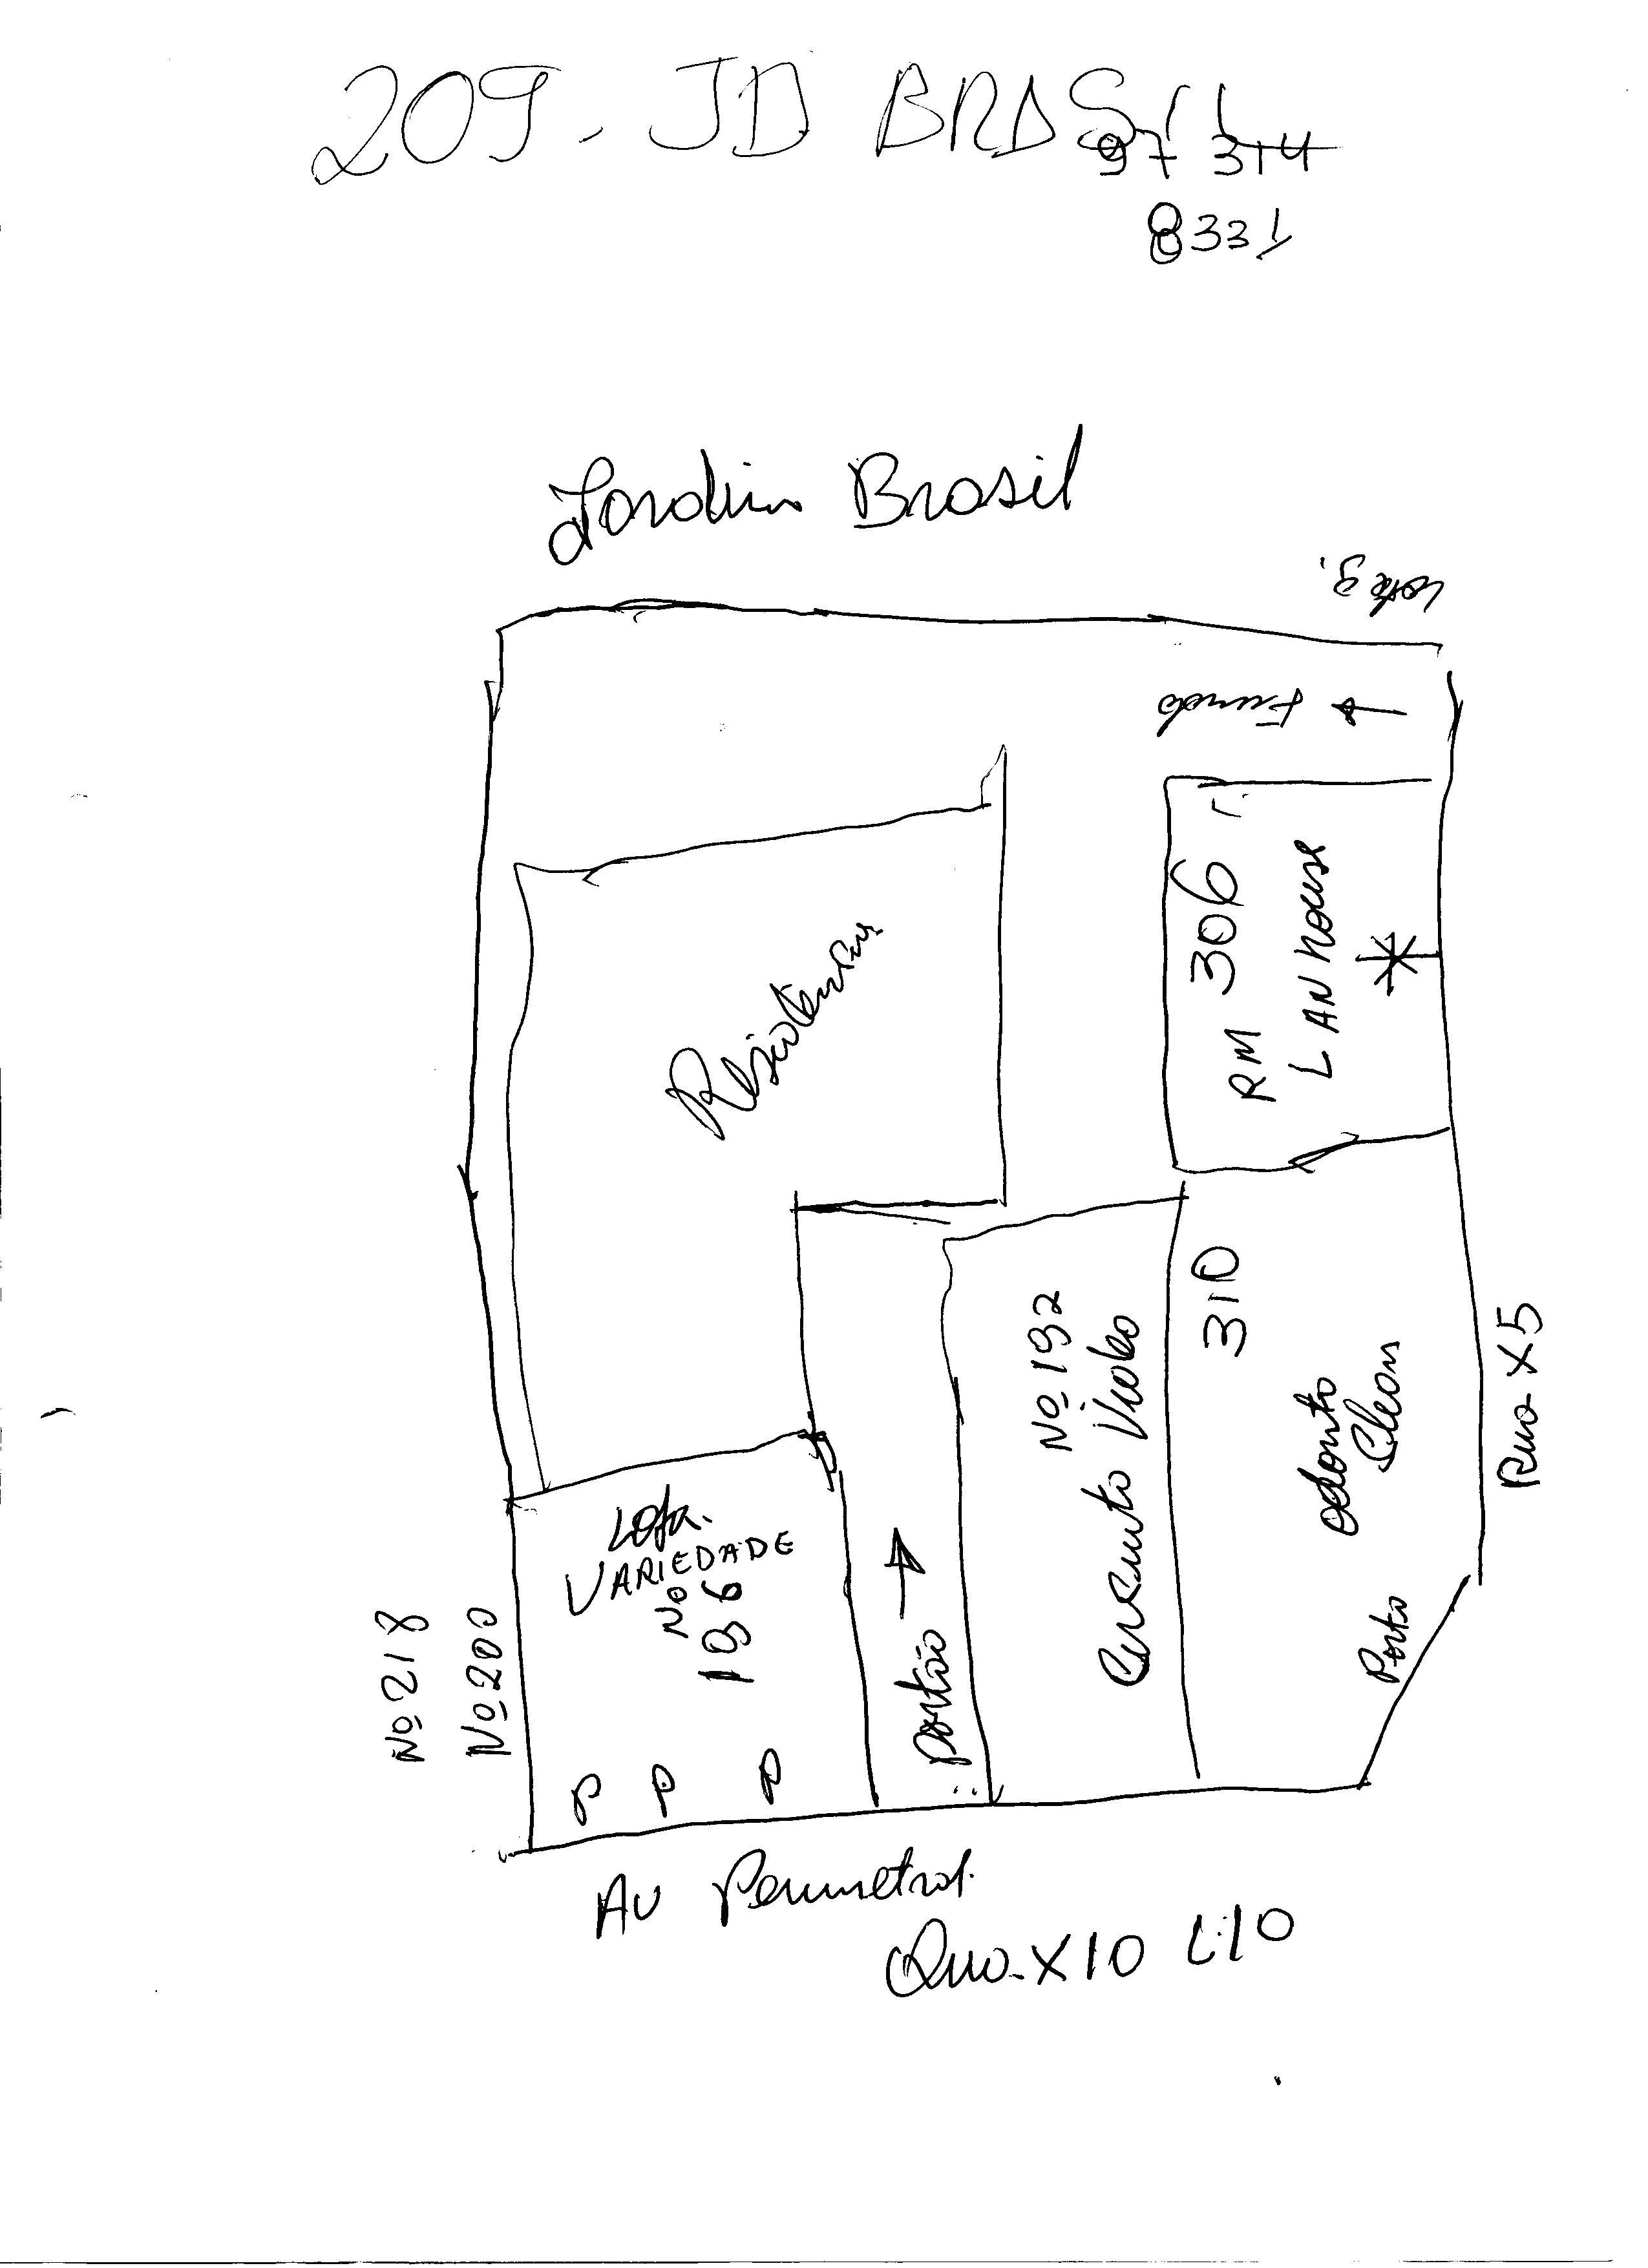 209. JD BRASIL
97 314
8331
Jardim Brasil
Lote 9.
Fundo
RM 306
LAN house
Residencia
Nº 192
310
Odonto
Clean
Rua X5
Loja.
VARIEDADE
Nº
196
Nº 218
Nº 200
portão
Porta
P P P
Av Perimetral.
Qua. X10 L.10